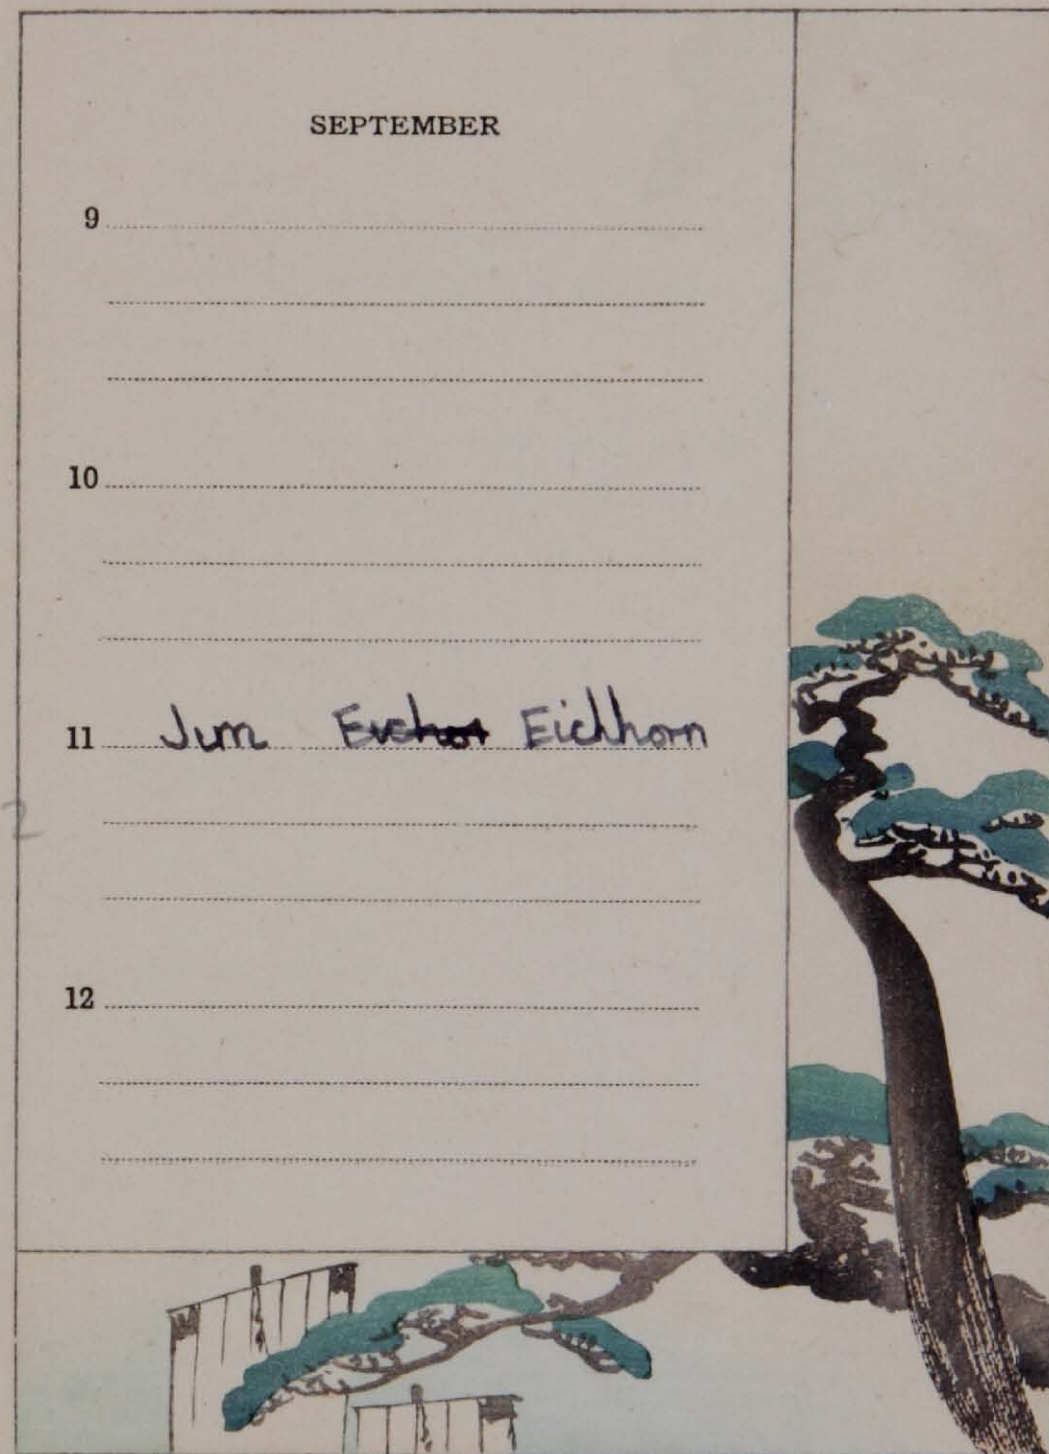 SEPTEMBER
9
10
11 Jim Eichhorn
12
2